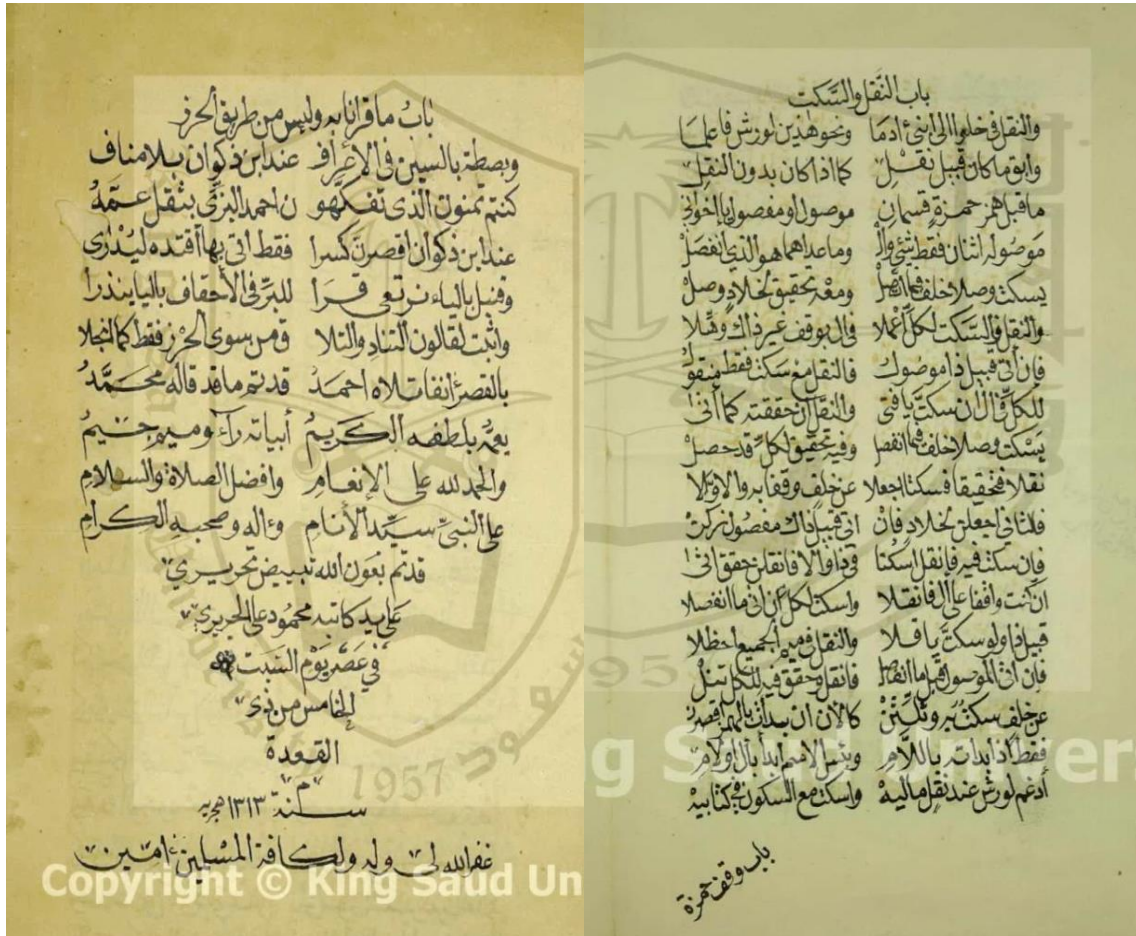 باب النقل والسكت
والنقل في خلوا الى ابني أدما ونحو هذين لورش فاعلما
وابق ما كان قبيل نقل كما اذا كان بدون النقل
ما قبل همز حمزة قسمان موصول او مفصول يا إخواني
موصوله اثنان فقط شئ وال وما عداهما هو الذي انفصل
يسكت وصلا خلف فيما اتصل ومعه تحقيق لخلاد وصل
والنقل والسكت لكل أعملا في ال بوقف غير ذاك وهلا
فإن أتى قبيل ذا موصول فالنقل مع سكت فقط منقول
للكل في ال ان سكت يا فتى والنقل ان حققته كما أتى
يسكت وصلا خلف فيما انفصل وفيه تحقيق لكل قد حصل
نقلا فتحقيقا فسكتا اجعلا عن خلف وقفا به والاولا
فالثاني اجعلن لخلاد فإن اتى قبيل ذاك مفصول زكن
فإن سكت فيه فانقل اسكتا في ذا والا فانقلن حقق اتى
ان كنت واقفا على ال فانقلا واسكت لكل ان اتى ما انفصلا
قبيل ذا ولو سكت يا فلا والنقل في ميم الجميع احظلا
فإن اتى الموصول قبل ما انفصل فانقل وحقق فيه للكل تنل
عن خلف سكت به وثلثن كالآن ان بدأت بالهمز اقصرن
فقط اذا بدات باللام وبئس الاسم ابدأ بال او لام
أدغم لورش عند نقل ماليه واسكت مع السكون في كتابيه
باب وقف حمزة
باب ما قرانا به وليس من طريق الحرز
وبصطة بالسين في الاعراف عند ابن ذكوان بلا مناف
كنتم تمنون الذي تفكهو ن احمد البزي بثقل عمه
عند ابن ذكوان اقصرن كسرا فقط اتى بها أقتده ليدرى
وقنبل بالياء نرتعي قرا للبز في الأحقاف باليا ينذرا
واثبت لقالون التناد والتلا ق ومن سوى الحرز فقط كما انجلا
بالقصر ءانفا تلاه احمد قد تم ما قد قاله محمد
يعمه بلطفه الكريم أبياته راء وميم جيم
والحمد لله على الإنعام وافضل الصلاة والسلام
على النبي سيد الأنام وءاله وصحبه الكرام
قد تم بعون الله تبييض تحريري
على يد كاتبه محمود على الجريري
في عصر يوم السبت
الخامس من ذى
القعدة
سنة ١٣١٣ هجريه
غفر الله لى وله ولكافة المسلمين ءامين
1957
Copyright © King Saud Univer